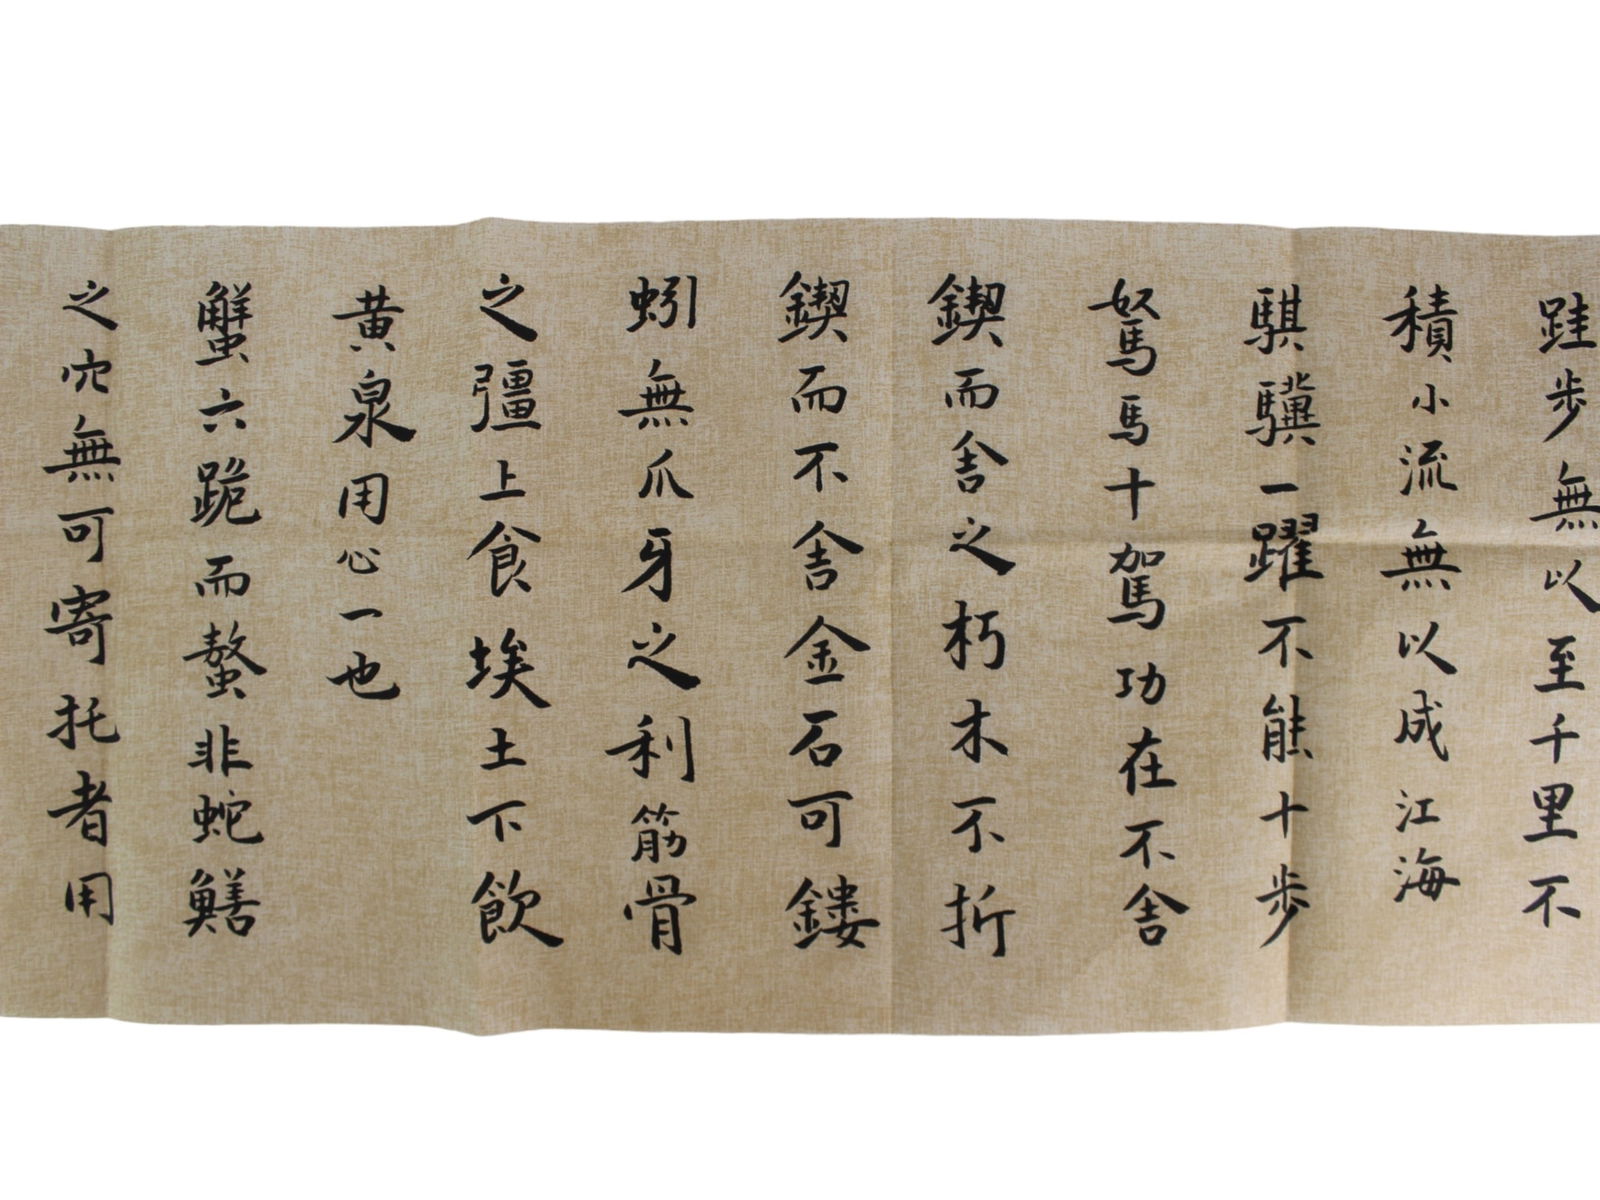 跬步無以至千里不
積小流無以成江海
騏驥一躍不能十步
駑馬十駕功在不舍
鍥而舍之朽木不折
鍥而不舍金石可鏤
蚓無爪牙之利筋骨
之彊上食埃土下飲
黃泉用心一也
蟹六跪而螯非蛇鱔
之穴無可寄托者用